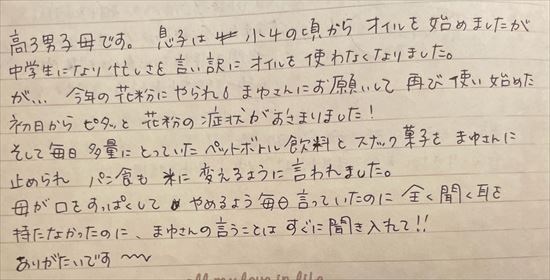 高3男子母です。息子は小4の頃からオイルを始めましたが
中学生になり忙しさを言い訳にオイルを使わなくなりました。
が… 今年の花粉にやられ。まゆさんにお願いして再び使い始めた
初日からピタッと花粉の症状がおさまりました！
そして毎日多量にとっていたペットボトル飲料とスナック菓子をまゆさんに
止められ パン食も米に変えるように言われました。
母が口をすっぱくしてやめるよう毎日言っていたのに全く聞く耳を
持たなかったのに、まゆさんの言うことはすぐに聞き入れて!!
ありがたいです〜〜
all my love in life